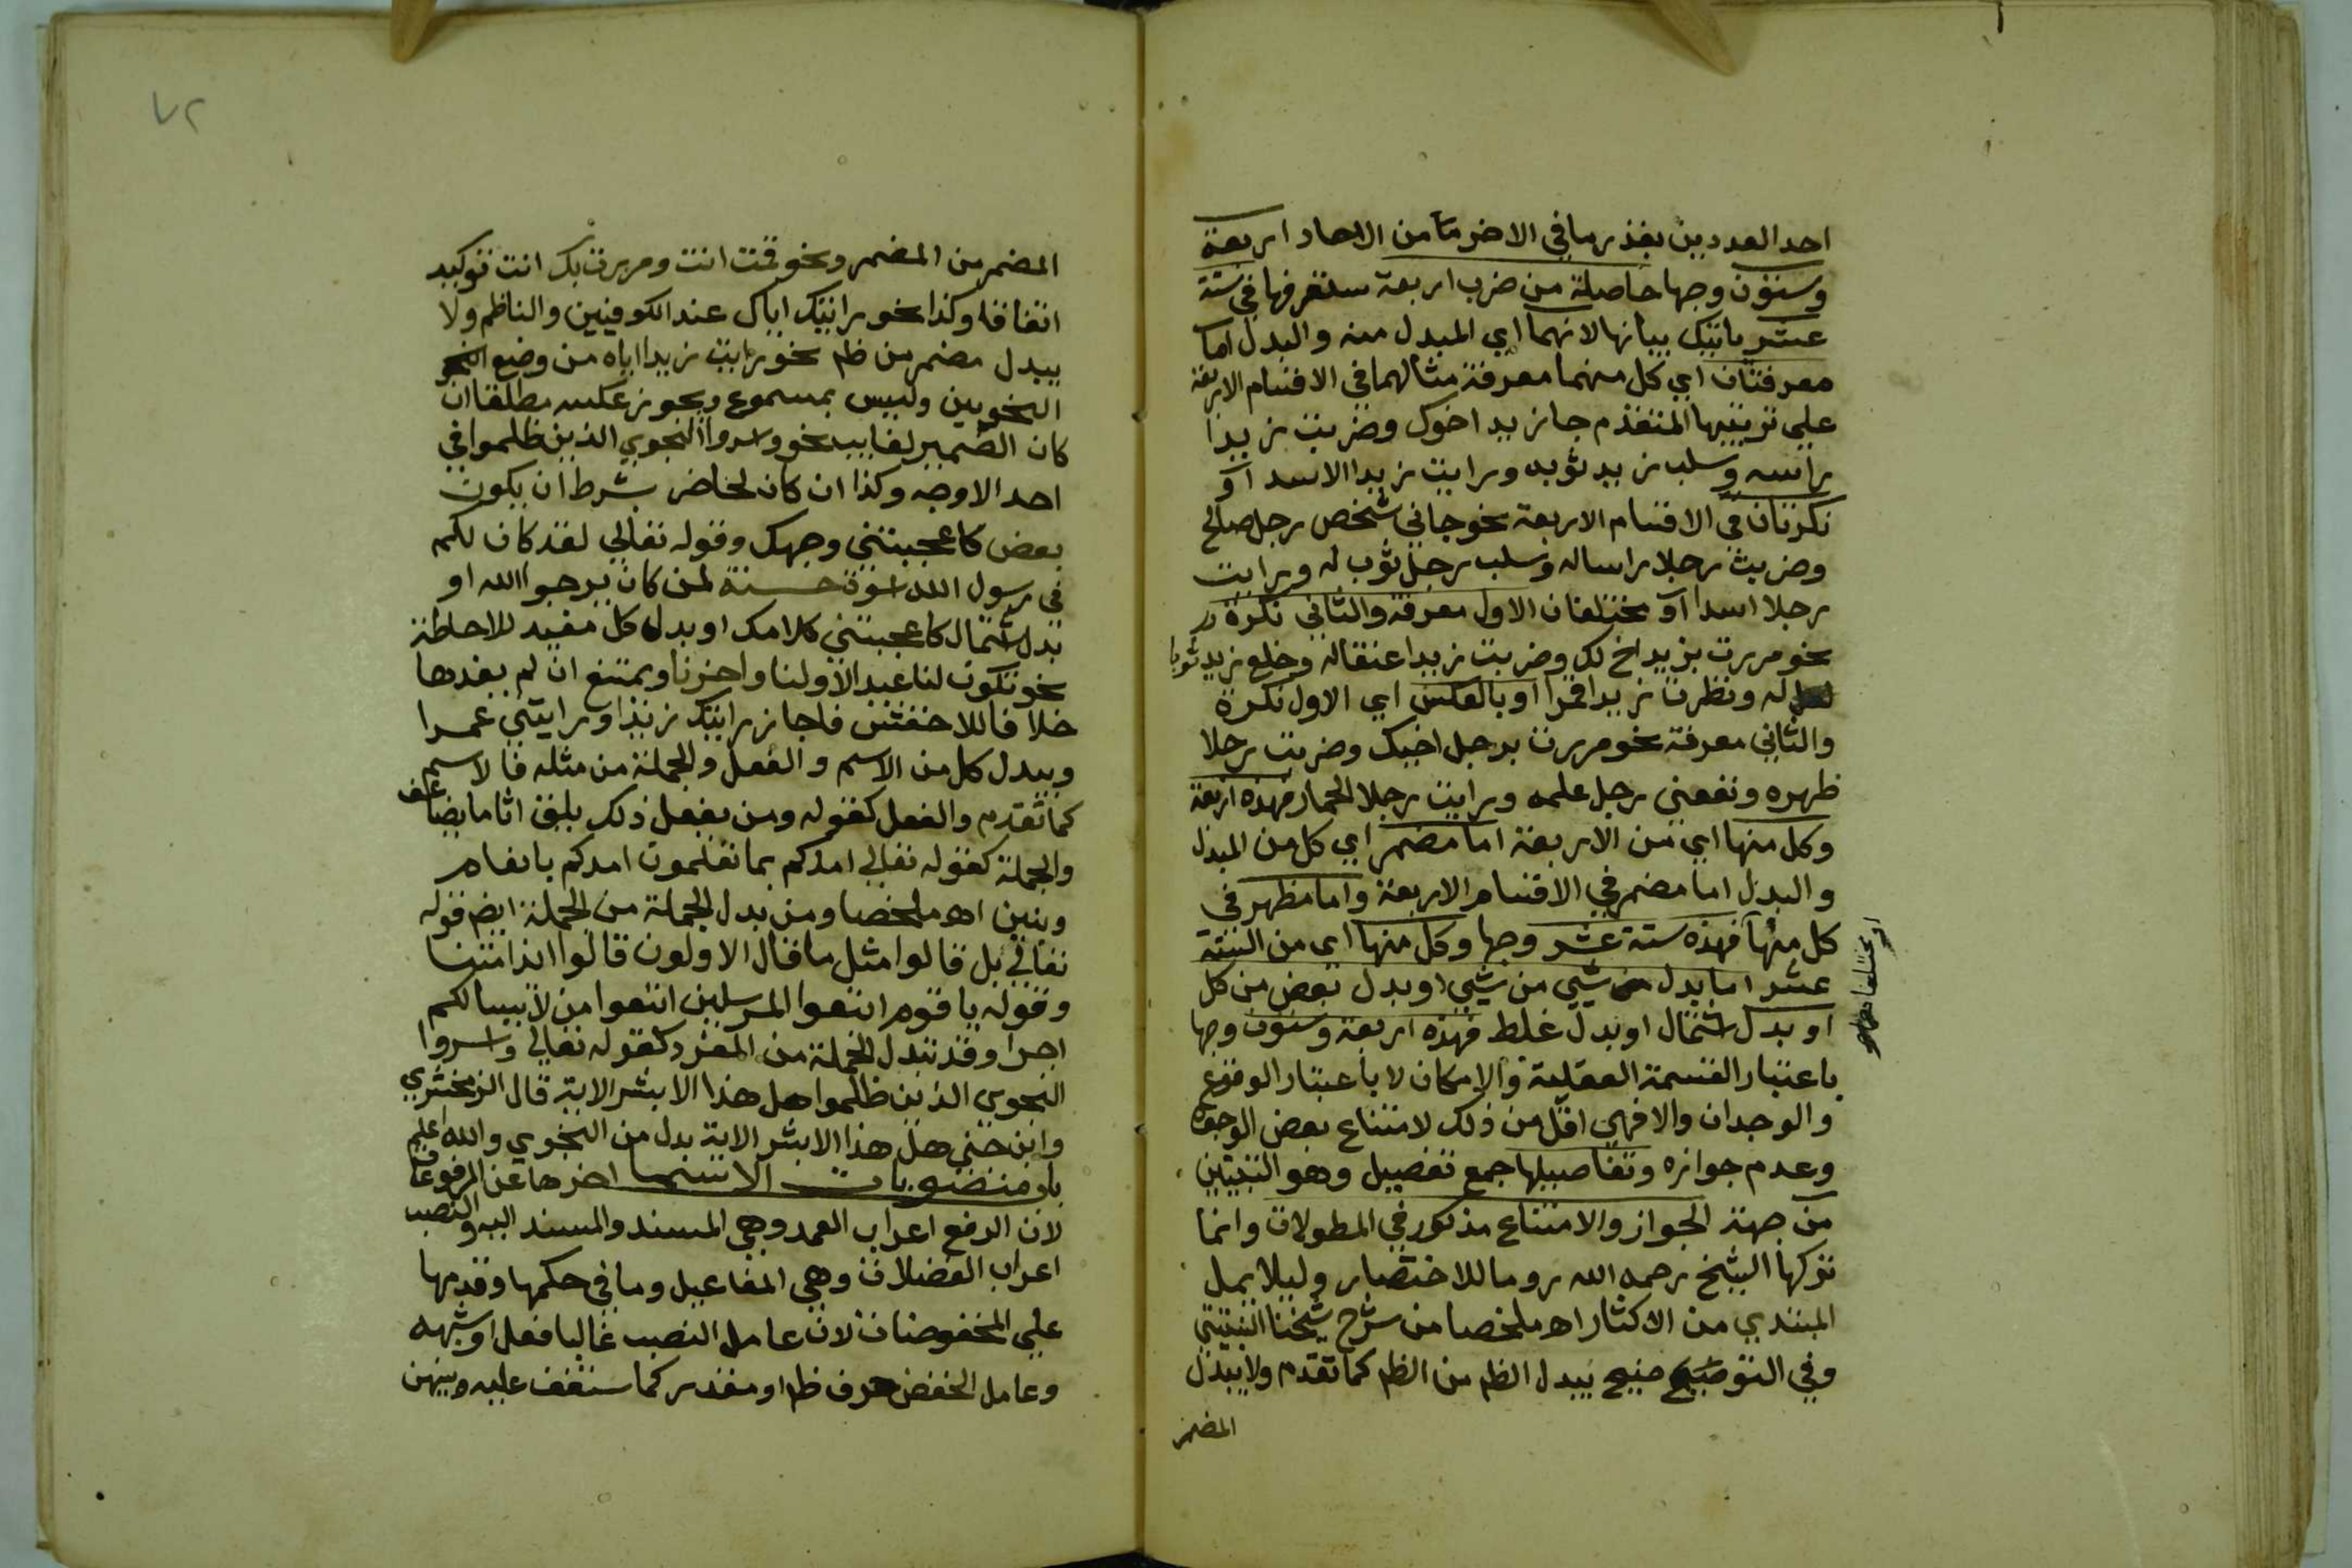 احد العددين بقدر ما في الاخر مآ من الاحاد اربعة
وستون وجها حاصلة من ضرب اربعة ستعرفها في ستة
عشر ياتيك بيانها لانهما اي المبدل منه والبدل اما
معرفتان اي كل منهما معرفة مثالهما في الاقسام الاربعة
علي ترتيبها المتقدم جا زيد اخوك وضربت زيدا
راسه وسلب زيد ثوبه ورايت زيدا الاسد او
نكرتان في الاقسام الاربعة نحو جاني شخص رجل صالح
وضربت رجلا راسا له وسلب رجل ثوب له ورايت
رجلا اسدا او مختلفان الاول معرفة والثاني نكرة
نحو مررت بزيد اخ لك وضربت زيدا عنقا له وخلع زيد ثوبا
له ونظرت زيدا قمرا او بالعكس اي الاول نكرة
والثاني معرفة نحو مررت برجل اخيك وضربت رجلا
ظهره ونفعني رجل علمه ورايت رجلا الحمار فهذه اربعة
وكل منها اي من الاربعة اما مضمر اي كل من المبدل
والبدل اما مضمر في الاقسام الاربعة واما مظهر في
كل منها فهذه ستة عشر وجها وكل منها اي من الستة
عشر اما بدل شيي من شيي او بدل بعض من كل
او بدل اشتمال او بدل غلط فهذه اربعة وستون وجها
باعتبار القسمة العقلية والامكان لا باعتبار الوقوع
والوجدان والا فهي اقل من ذلك لامتناع بعض الوجوه
وعدم جوازه وتفاصيلها جمع تفصيل وهو التبيين
من جهة الجواز والامتناع مذكور في المطولات وانما
تركها الشيخ رحمه الله روما للاختصار وليلا يمل
المبتدي من الاكثار اه ملخصا من شرح شيخنا النبتيتي
وفي التوضيح يبدل الظم من الظم كما تقدم ولا يبدل
المضمر
٧٢
المضمر من المضمر ونحو قمت انت ومررت بك انت توكيد
اتفاقا وكذا نحو رايتك اياك عند الكوفيين والناظم ولا
يبدل مضمر من ظم نحو رايت زيدا اياه من وضع
النحويين وليس بمسموع ويجوز عكسه مطلقا ان
كان الضمير لغايب نحو واسروا النجوي الذين ظلموا في
احد الاوجه وكذا ان كان لحاضر بشرط ان يكون
بعض كاعجبتني وجهك وقوله تعالي لقد كان لكم
في رسول الله اسوة حسنة لمن كان يرجوا الله او
بدل اشتمال كاعجبتني كلامك او بدل كل مفيد للاحاطة
نحو تكون لنا عيد الاولنا واخرنا ويمتنع ان لم يفدها
خلافا للاخفش فاجاز رايتك زيدا ورايتني عمرا
ويبدل كل من الاسم والفعل والجملة من مثله فالاسم
كما تقدم والفعل كقوله ومن يفعل ذلك يلق اثاما يضاعف
والجملة كقوله تعالي امدكم بما تعلمون امدكم بانعام
وبنين اه ملخصا ومن بدل الجملة من الجملة ايضم قوله
تعالي بل قالوا مثل ما قال الاولون قالوا ائذا متنا
وقوله يا قوم اتبعوا المرسلين اتبعوا من لا يسالكم
اجرا وقد تبدل الجملة من المفرد كقوله تعالي واسروا
النجوي الذين ظلموا هل هذا الا بشر الاية قال الزمخشري
وابن جني هل هذا الا بشر الاية بدل من النجوي والله اعلم
باب منصوبات الاسما اخرها عن المرفوعات
لان الرفع اعراب العمد وهي المسند والمسند اليه والنصب
اعراب الفضلات وهي المفاعيل وما في حكمها وقدمها
علي المخفوضات لان عامل النصب غالبا فعل او شبهه
وعامل الخفض حرف ظم او مقدر كما ستقف عليه وبينهن